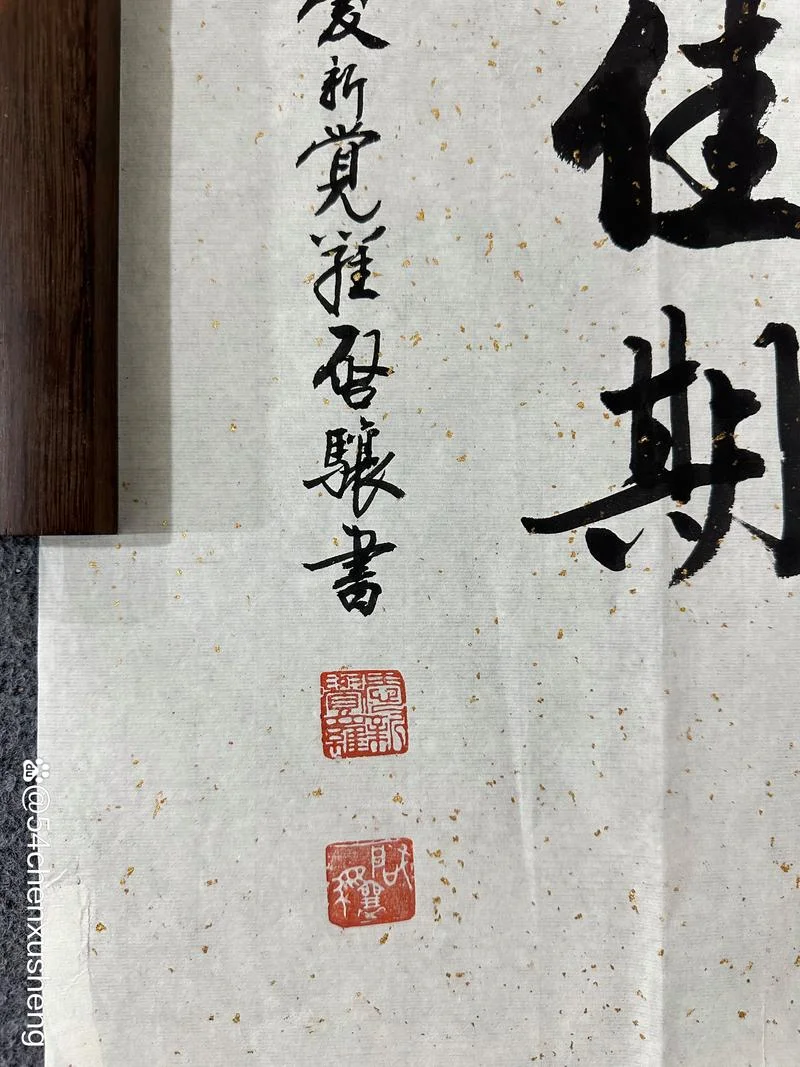 佳期
愛新覺羅啓驤書
愛新覺羅
@54chenxusheng